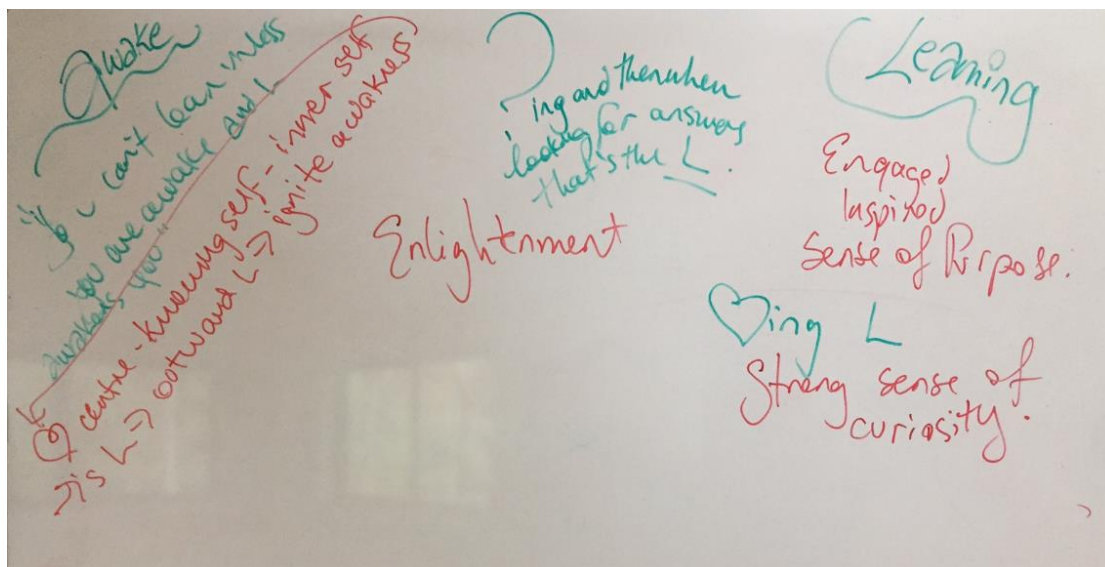 Awake
"U can't lean inless
you are awake and L
awakens you"
centre - knowing self - inner self
is L => outward L => ignite awakness
?
ing and then when
looking for answers
that's the L.
Enlightenment
Leaning
Engaged
Inspired
Sense of Purpose.
♡ing L
Strong sense of
curiosity.